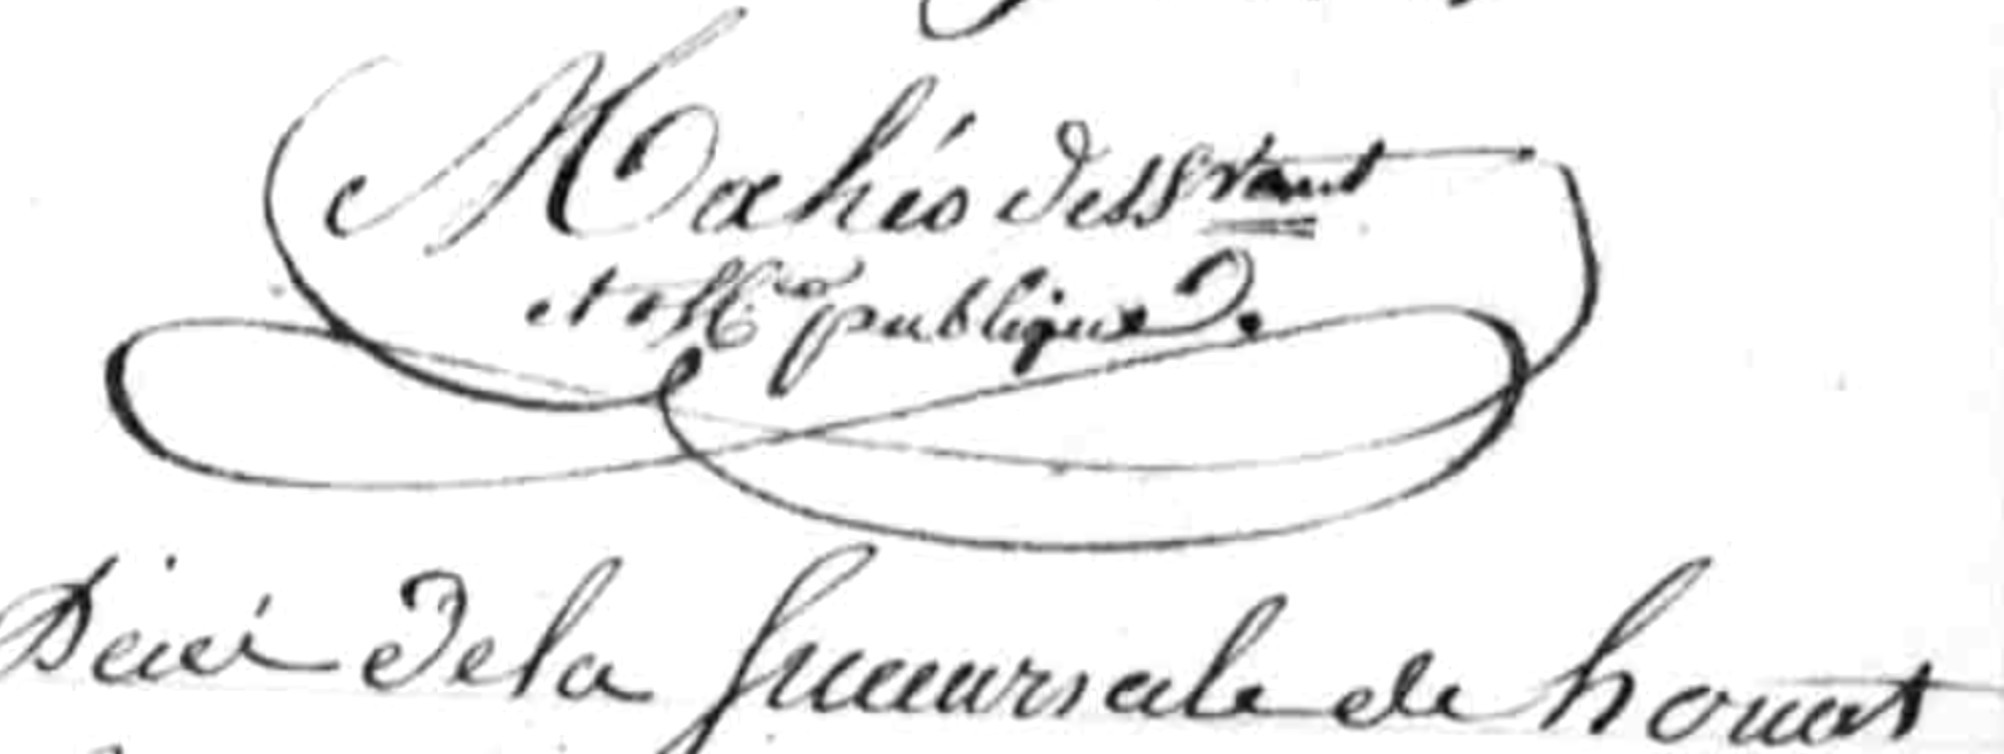 Mahéo desservant
et off.er publique
Décès de la succursale de houat